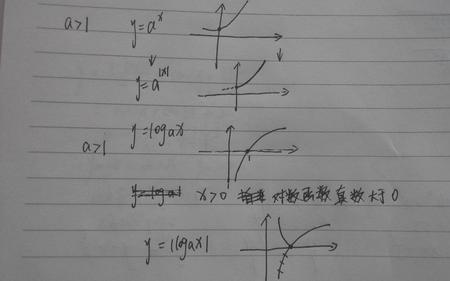 a>1 y=aˣ
y=a^|x|
a>1 y=logax
1
x>0 对数函数真数大于0
y=|logax|